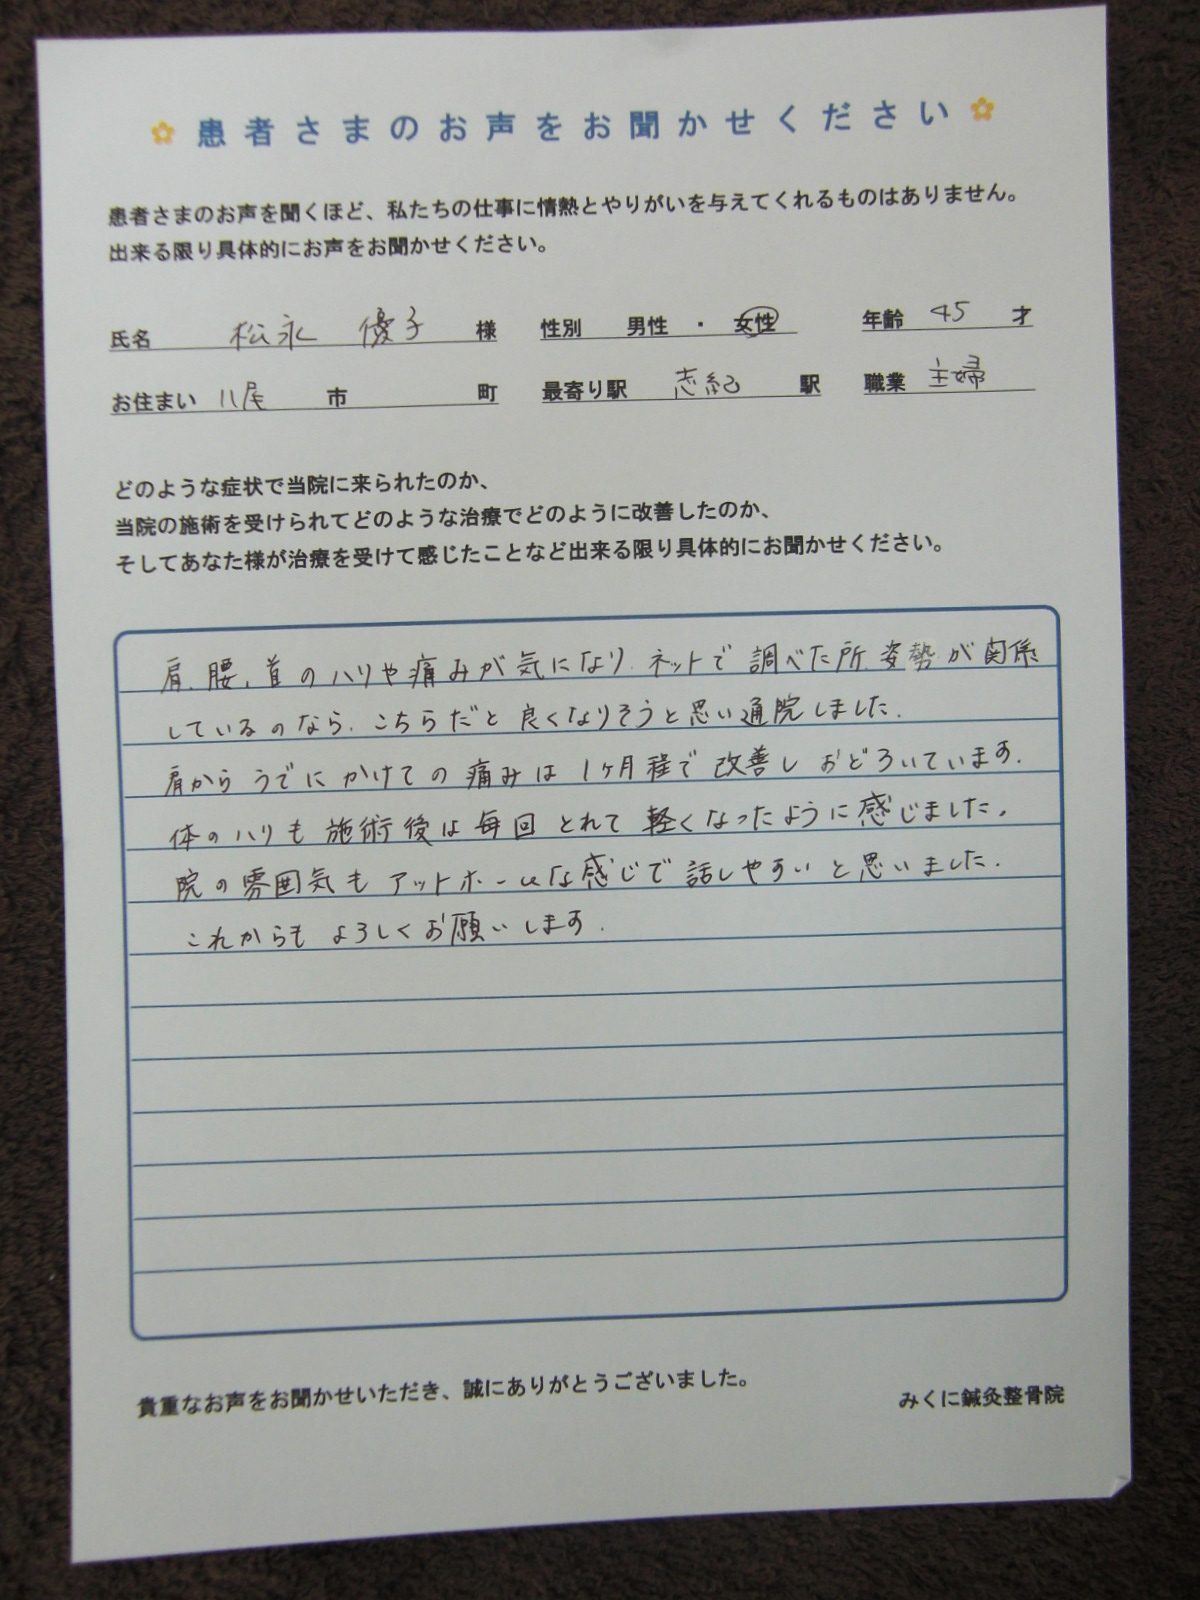 患者さまのお声をお聞かせください
患者さまのお声を聞くほど、私たちの仕事に情熱とやりがいを与えてくれるものはありません。
出来る限り具体的にお声をお聞かせください。
氏名 松永 優子 様 性別 男性 ・ 女性 年齢 45 才
お住まい 八尾 市 町 最寄り駅 志紀 駅 職業 主婦
どのような症状で当院に来られたのか、
当院の施術を受けられてどのような治療でどのように改善したのか、
そしてあなた様が治療を受けて感じたことなど出来る限り具体的にお聞かせください。
肩、腰、首のハリや痛みが気になり、ネットで調べた所、姿勢が関係
しているのなら、こちらだと良くなりそうと思い通院しました。
肩からうでにかけての痛みは1ヶ月程で改善しおどろいています。
体のハリも施術後は毎回とれて軽くなったように感じました。
院の雰囲気もアットホームな感じで話しやすいと思いました。
これからもよろしくお願いします。
貴重なお声をお聞かせいただき、誠にありがとうございました。
みくに鍼灸整骨院